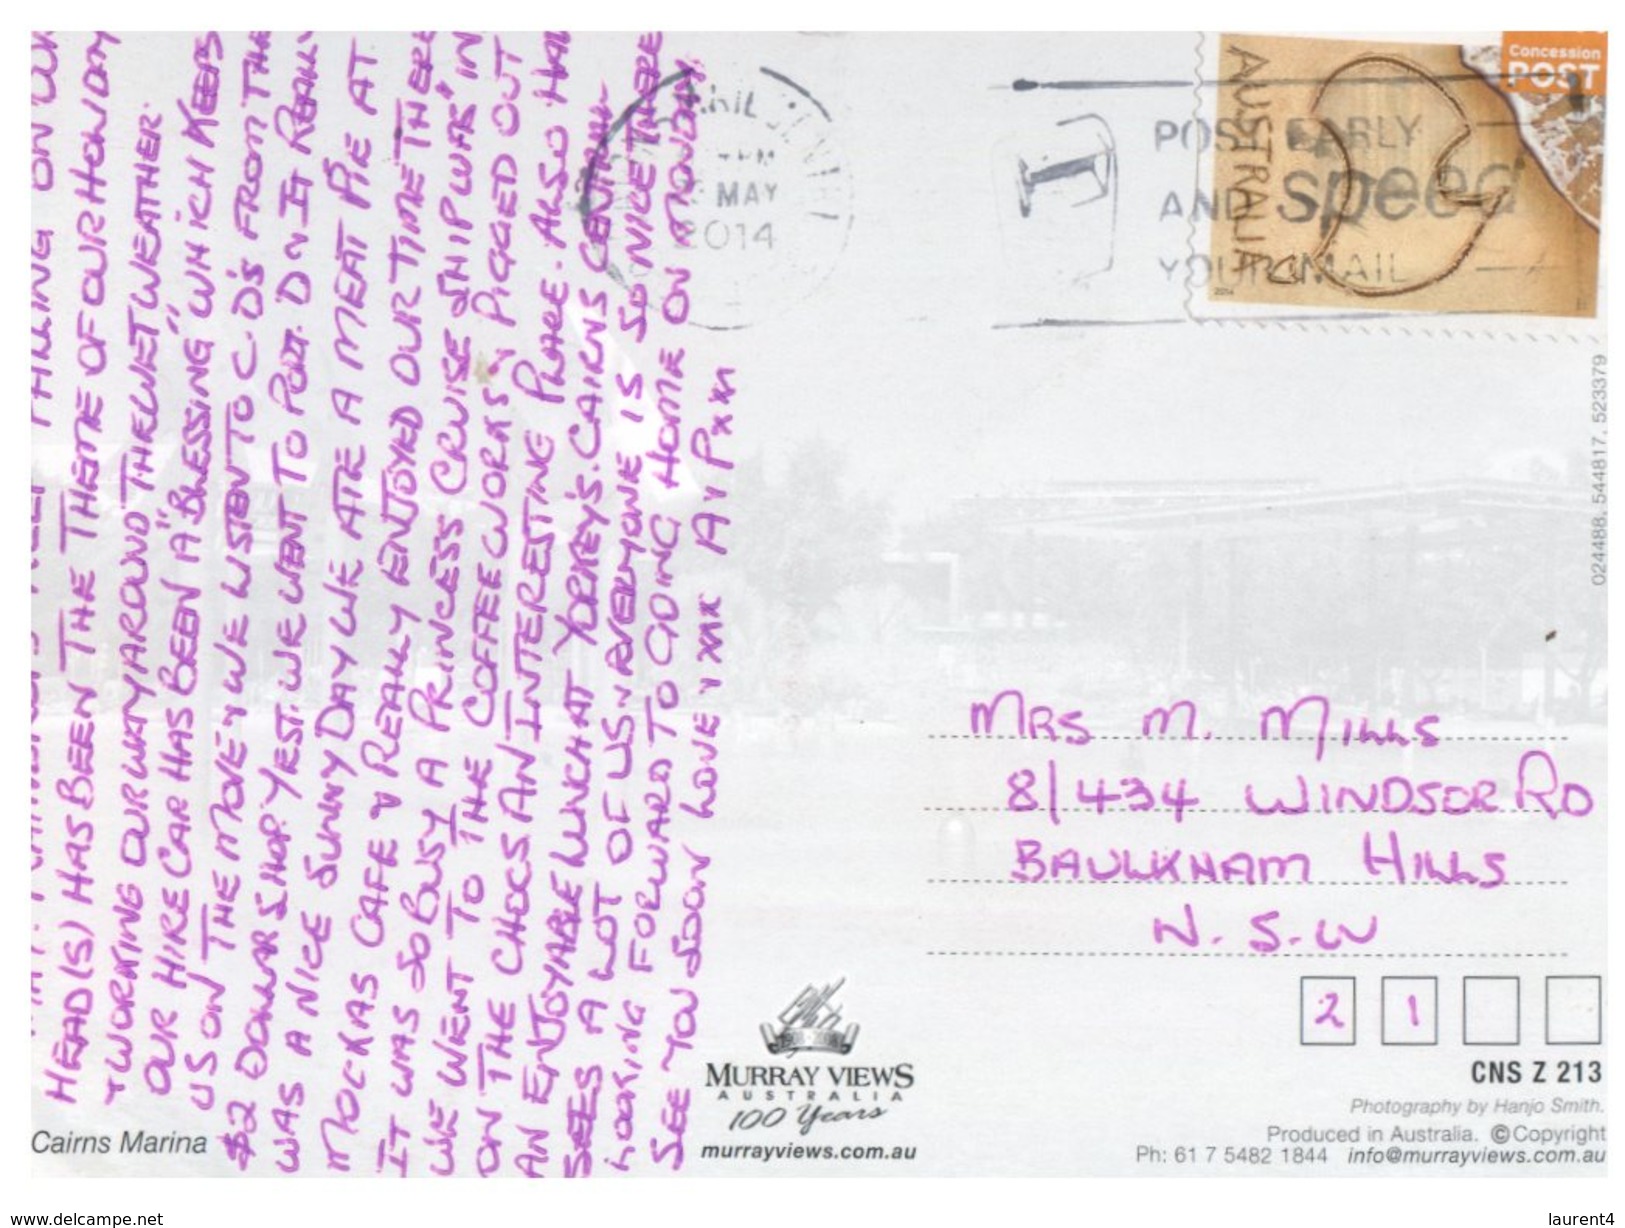 FALLING ON OUR
HEAD(S) HAS BEEN THE THEME OF OUR HOLIDAY
& WORKING OUR WAY AROUND THE WET WEATHER.
OUR HIRE CAR HAS BEEN A "BLESSING" WHICH KEEPS
US ON THE MOVE & WE LISTEN TO C.D'S FROM THE
$2 DOLLAR SHOP. YEST. WE WENT TO PORT. D & IT REALLY
WAS A NICE SUNNY DAY WE ATE A MEAT PIE AT
MOCKAS CAFE & REALLY ENJOYED OUR TIME THERE
IT WAS SO BUSY A PRINCESS CRUISE SHIP WAS "IN"
WE WENT TO THE COFFEE WORKS & PIGGED OUT
ON THE CHOCS AN INTERESTING PLACE. ALSO HAD
AN ENJOYABLE LUNCH AT YORKEY'S. CAIRNS CENTRAL
SEES A LOT OF US & EVERYONE IS SO NICE THERE
LOOKING FORWARD TO GOING HOME ON MONDAY.
SEE YOU SOON LOVE & xxx A & P xx
Concession
POST
AUSTRALIA
2014
MAY
2014
POST EARLY
AND speed
YOUR MAIL
024488. 544817. 523379
MRS M. MILLS
8/434 WINDSOR RD
BAULKHAM HILLS
N.S.W
2 1
CNS Z 213
Photography by Hanjo Smith.
Produced in Australia. © Copyright
Ph: 61 7 5482 1844 info@murrayviews.com.au
1908 - 2008
MURRAY VIEWS
AUSTRALIA
100 Years
murrayviews.com.au
Cairns Marina
www.delcampe.net
laurent4